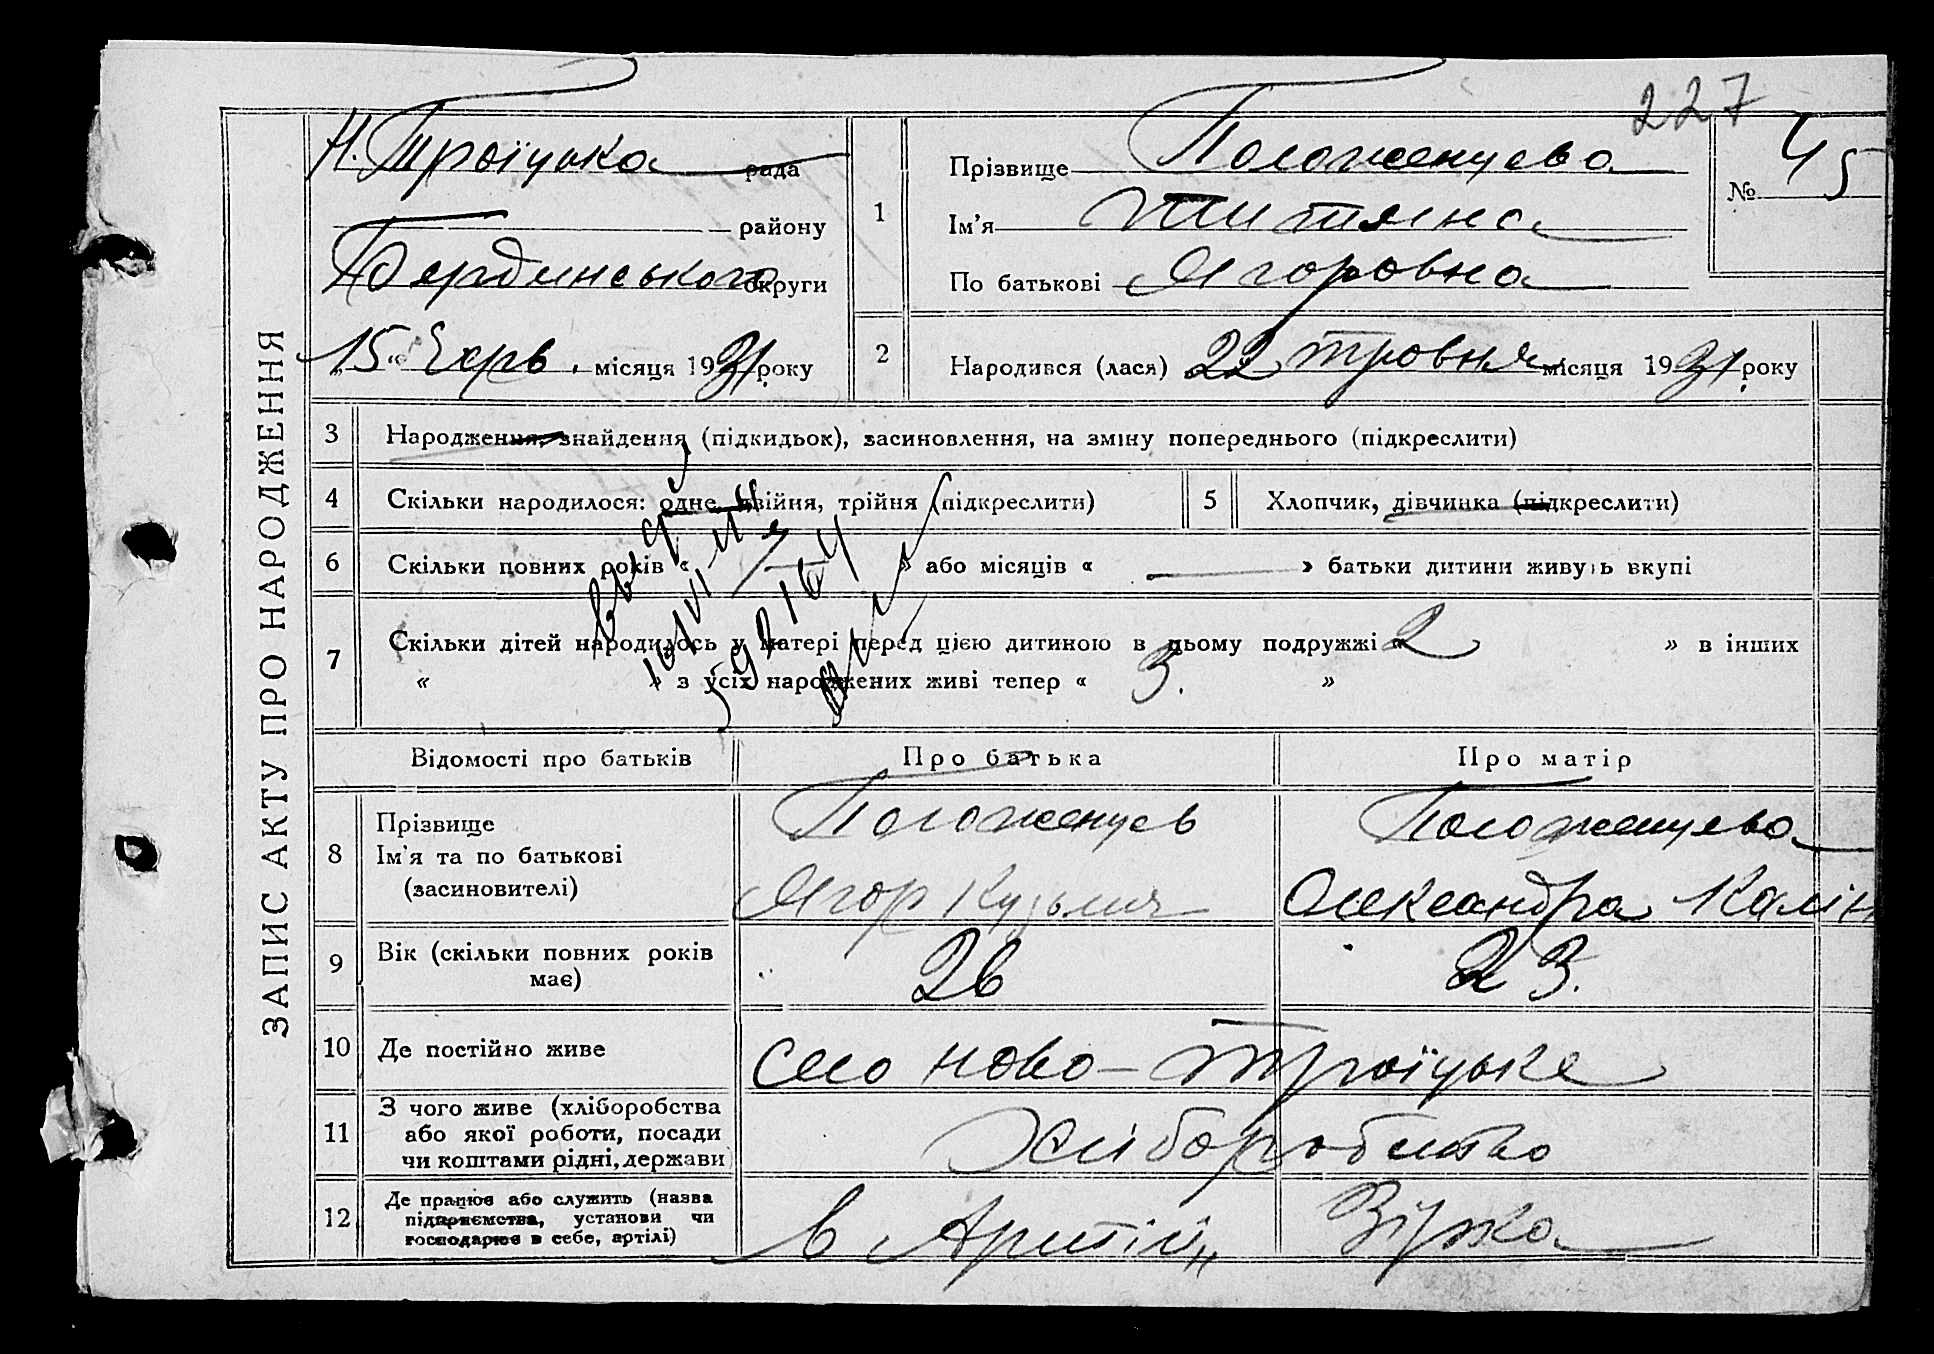 227
ЗАПИС АКТУ ПРО НАРОДЖЕННЯ
Н. Троїцька рада
району
Бердинського округи
„15“ Черв. місяця 1931 року
1
Прізвище Положенцева
Ім’я Титяна
По батькові Ягоровна
№ 45
2
Народився (лася) 22 тровня місяця 1931 року
3 Народження, знайдення (підкидьок), засиновлення, на зміну попереднього (підкреслити)
4 Скільки народилося: одне, двійня, трійня (підкреслити)
5 Хлопчик, дівчинка (підкреслити)
6 Скільки повних років « » або місяців « — » батьки дитини живуть вкупі
7 Скільки дітей народилось у матері перед цією дитиною в цьому подружжі « 2 » в інших
« » з усіх народжених живі тепер « 3. »
Відомості про батьків Про батька Про матір
8 Прізвище
Ім’я та по батькові
(засиновителі)
Положенцев
Ягор Кузьмич
Положенцева
Олександра Калін
9 Вік (скільки повних років
має)
26
23.
10 Де постійно живе
село ново-Троїцьке
11 З чого живе (хліборобства
або якої роботи, посади
чи коштами рідні, держави
Хліборобство
12 Де працює або служить (назва
підприємства, установи чи
господарює в себе, артілі)
в Артілі